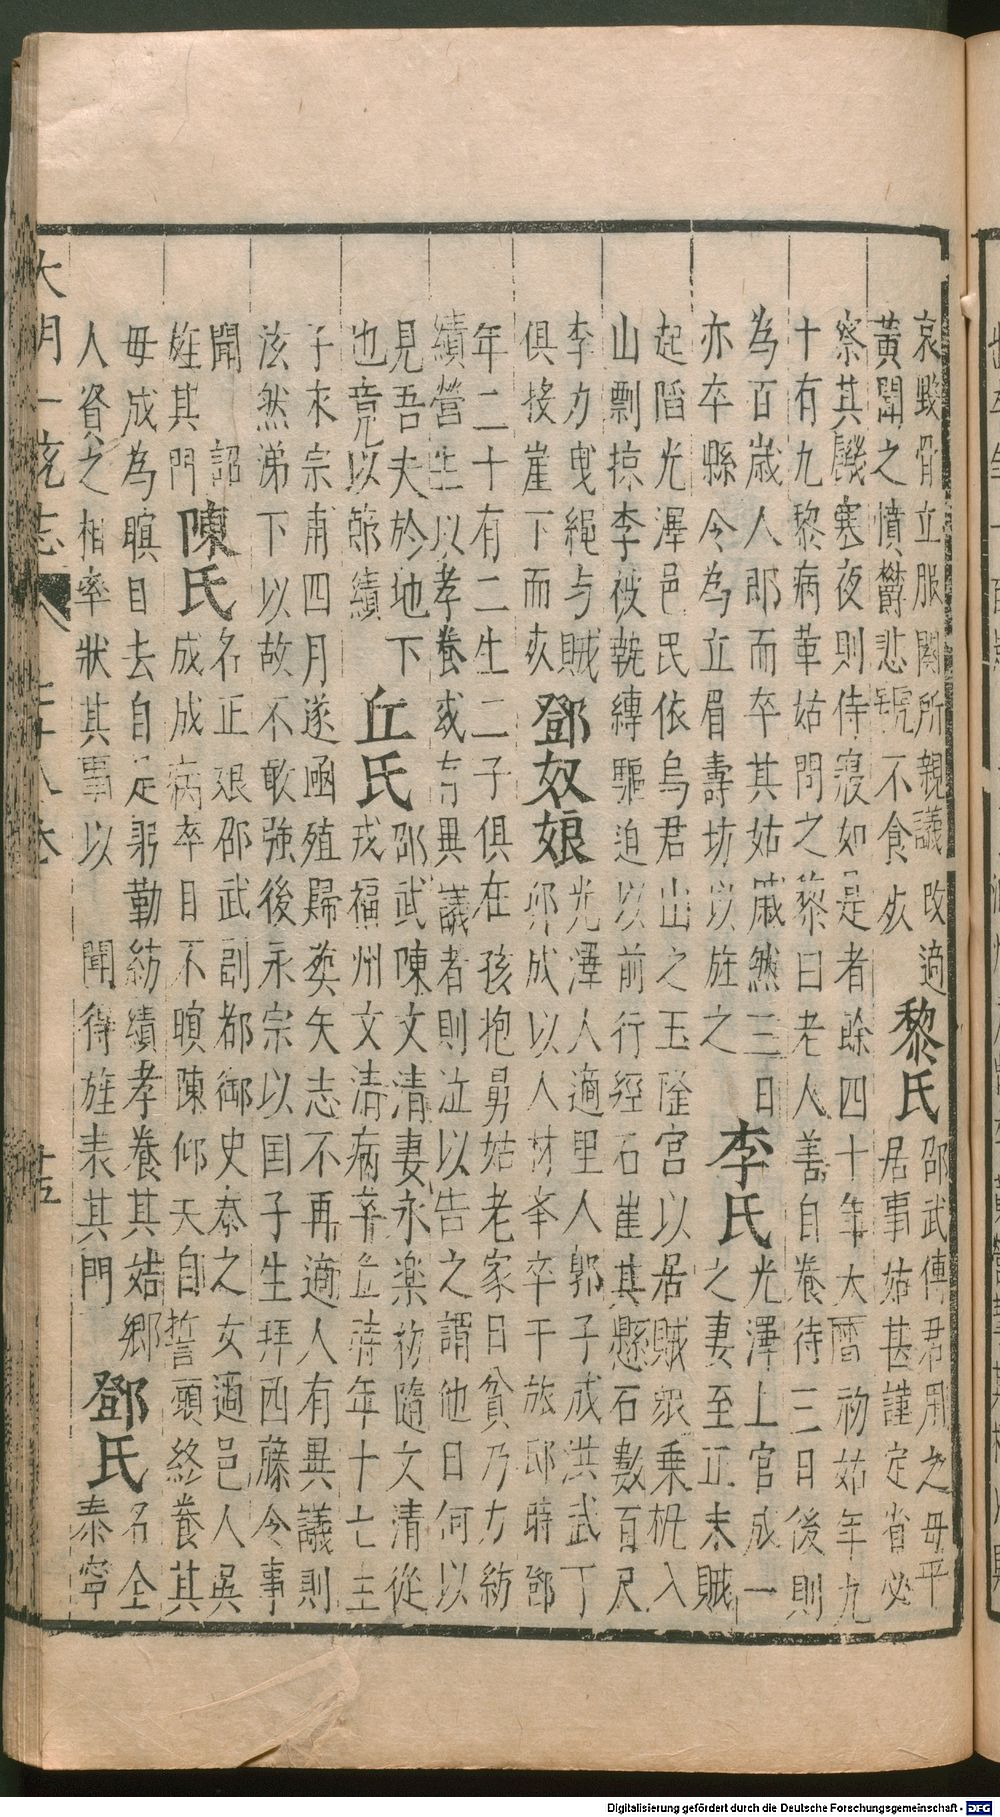 哀毀骨立服闋所親議改適
黃聞之憤鬱悲號不食死
黎氏
邵武傅君用之母平
居事姑甚謹定省必
察其饑寒夜則侍寢如是者餘四十年大曆初姑年九
十有九黎病革姑問之黎曰老人善自養待三日後則
為百歲人耶而卒其姑戚然三日
亦卒縣令為立眉壽坊以旌之
李氏
光澤上官成一
之妻至正末賊
起陷光澤邑民依烏君山之玉隆宮以居賊眾乘桄入
山剽掠李被執縛驅迫以前行經石崖其懸石數百尺
李力曳繩与賊
俱接崖下而死
鄧奴娘
光澤人適里人郭子成洪武丁
卯成以人材峯卒于旅邸時鄧
年二十有二生二子俱在孩抱舅姑老家日貧乃力紡
績營生以孝養或有異議者則泣以告之謂他日何以
見吾夫於地下
也竟以節績
丘氏
邵武陳文清妻永楽初隨文清從
戎福州文清病卒丘時年十七主
子來宗甫四月遂凾殖歸葬矢志不再適人有異議則
泫然涕下以故不敢強後永宗以国子生拜西藤令事
聞 詔
旌其門
陳氏
名正娘邵武副都御史泰之女適邑人吳
成成病卒目不瞑陳仰天自誓頭終養其
母成為瞑目去自是躬勤紡績孝養其姑鄉
人資之相率狀其事以 聞待旌表其門
鄧氏
名仝
泰寧
大明一统志 八卷
廿五
Digitalisierung gefördert durch die Deutsche Forschungsgemeinschaft - DFG